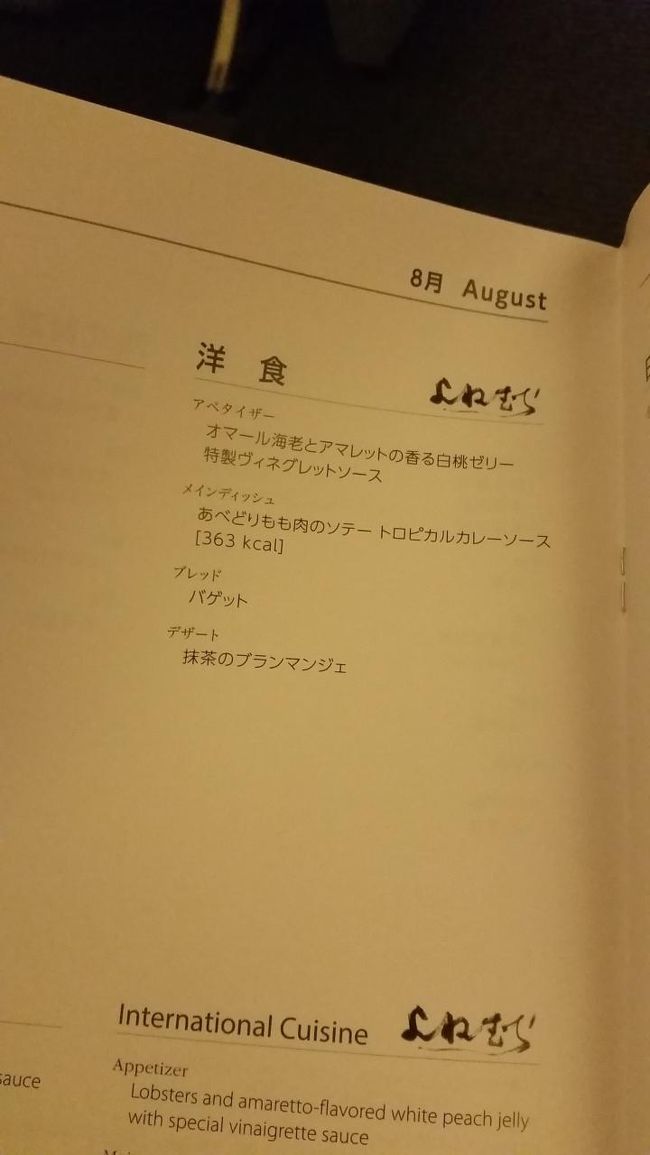 8月 August
洋 食
よねむら
アペタイザー
オマール海老とアマレットの香る白桃ゼリー
特製ヴィネグレットソース
メインディッシュ
あべどりもも肉のソテー トロピカルカレーソース
[363 kcal]
ブレッド
バゲット
デザート
抹茶のブランマンジェ
International Cuisine
よねむら
Appetizer
Lobsters and amaretto-flavored white peach jelly
with special vinaigrette sauce
sauce